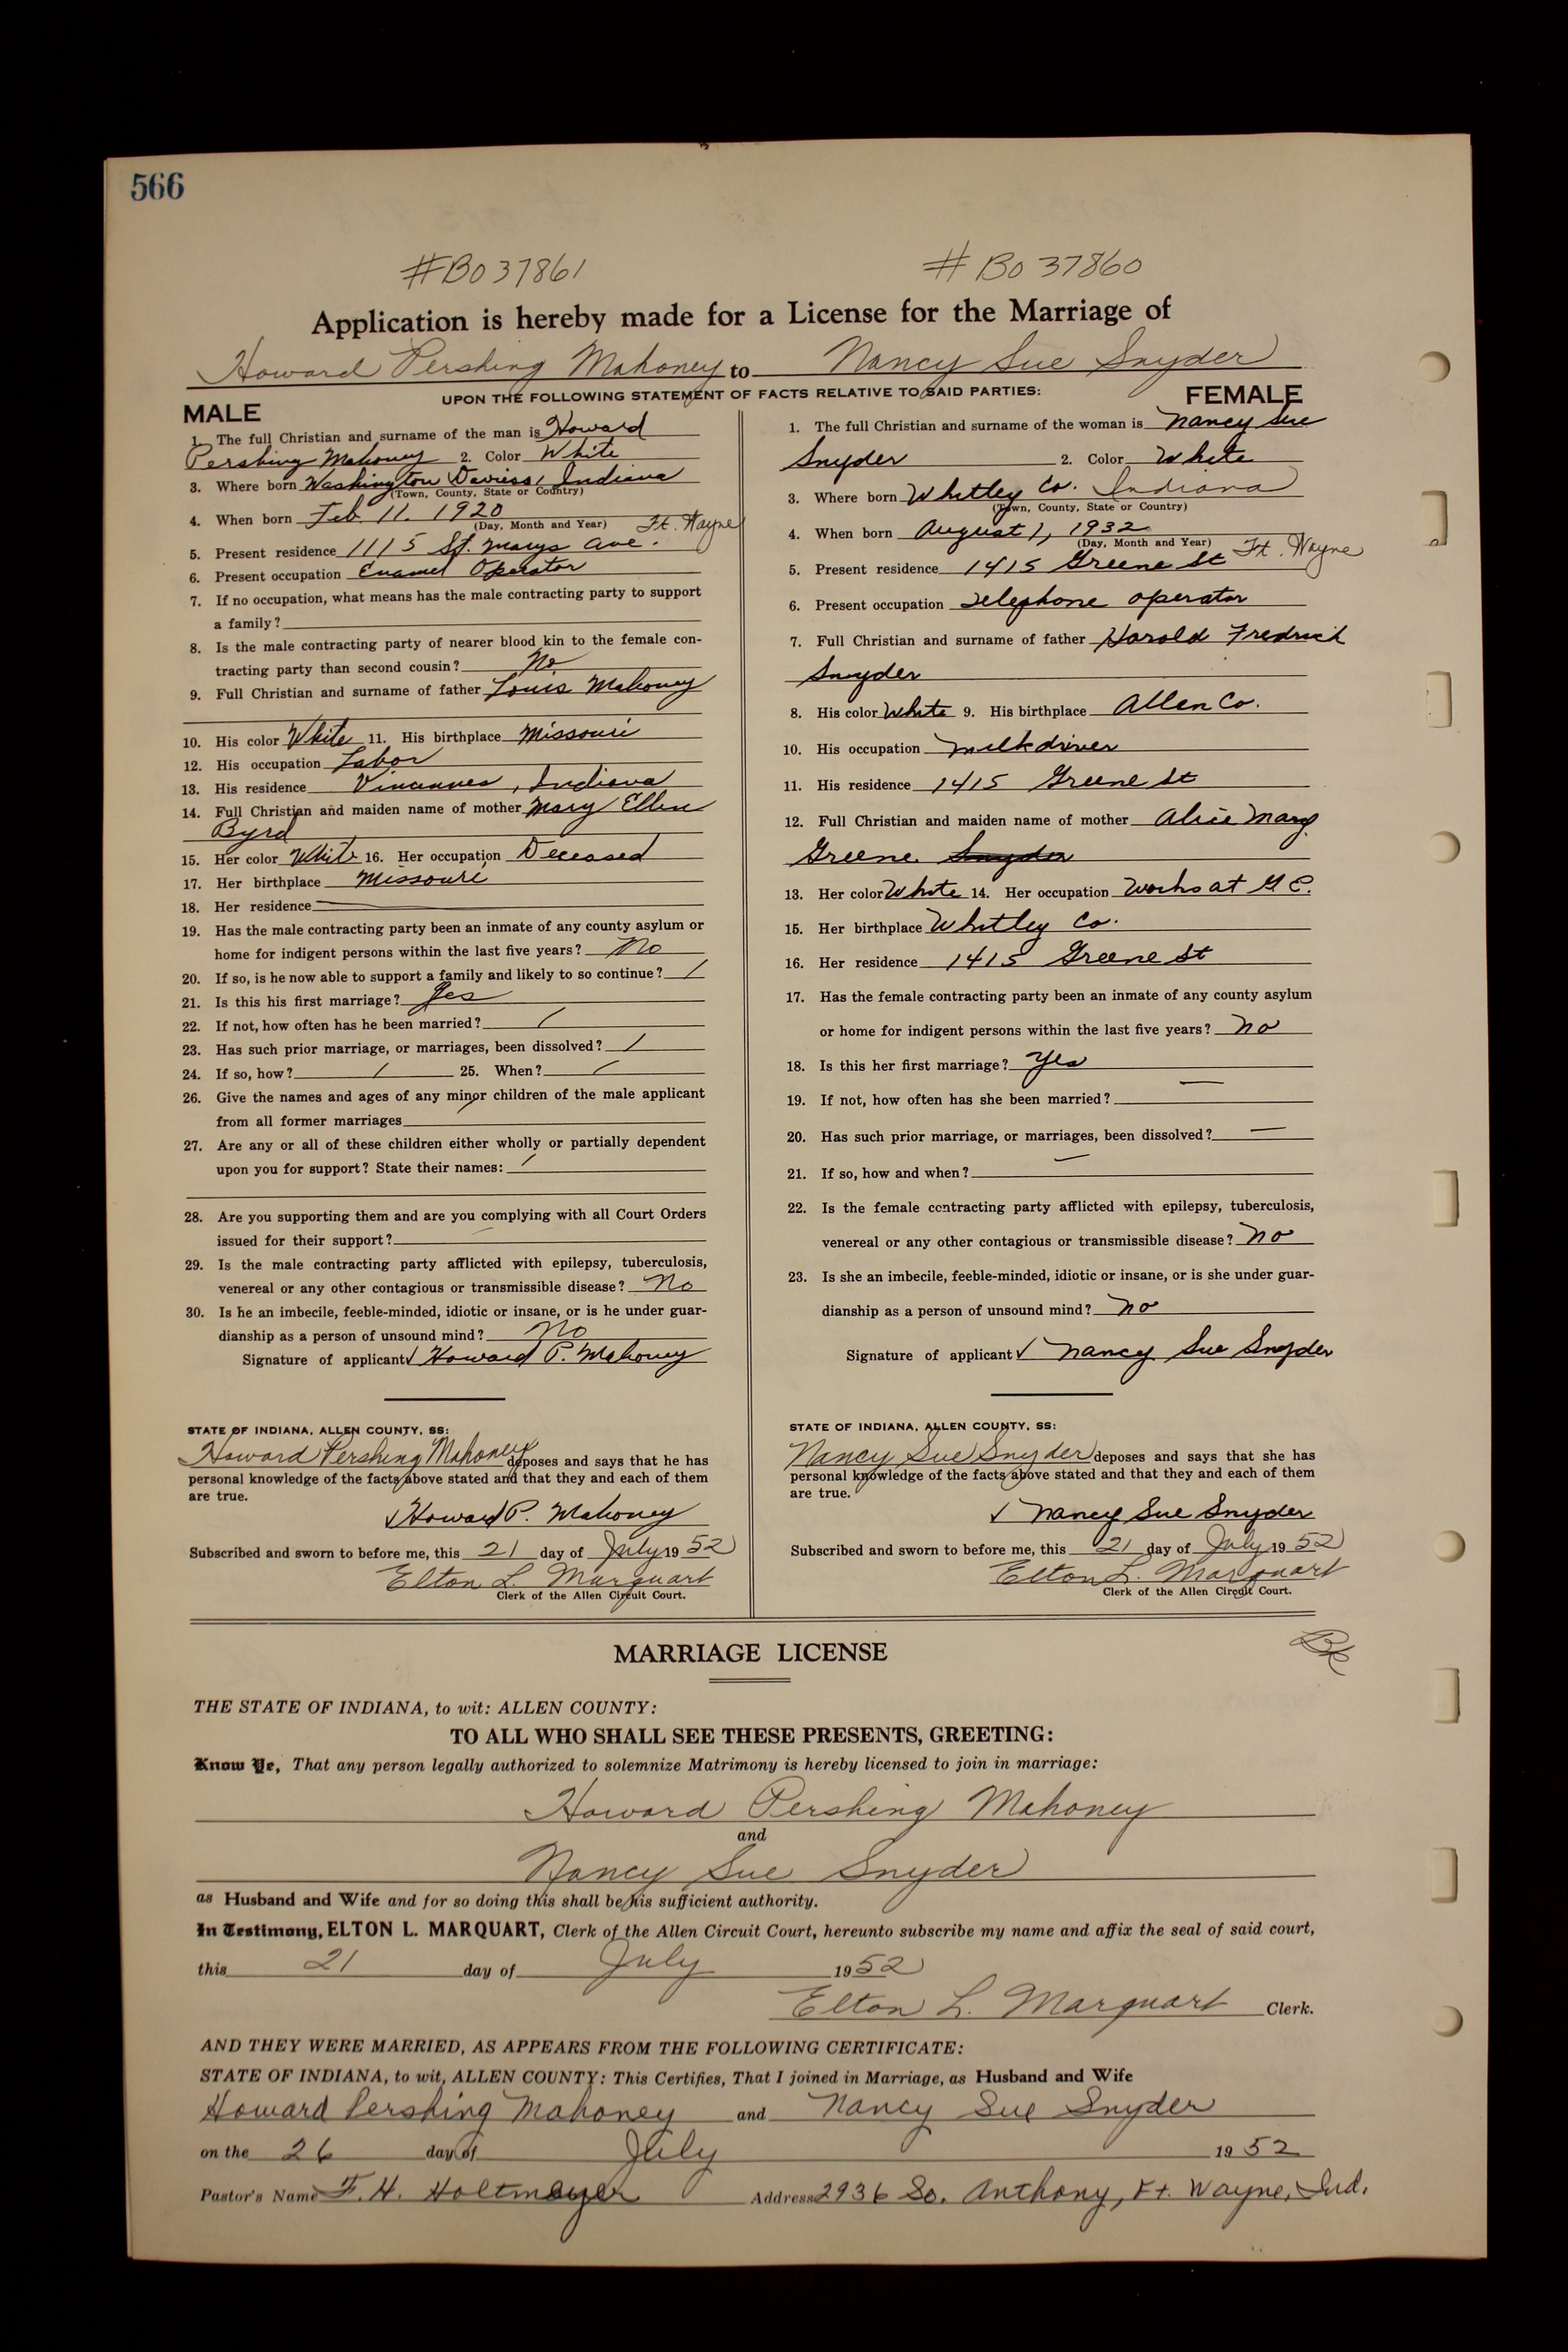 566
#B037861
# B0 37860
Application is hereby made for a License for the Marriage of
Howard Pershing Mahoney to Nancy Sue Snyder
UPON THE FOLLOWING STATEMENT OF FACTS RELATIVE TO SAID PARTIES:
MALE
1. The full Christian and surname of the man is Howard
Pershing Mahoney 2. Color White
3. Where born Washington Daviess, Indiana
(Town, County, State or Country)
4. When born Feb. 11. 1920
(Day, Month and Year) Ft. Wayne
5. Present residence 1115 St. Marys Ave.
6. Present occupation Enamel Operator
7. If no occupation, what means has the male contracting party to support
a family?
8. Is the male contracting party of nearer blood kin to the female con-
tracting party than second cousin? No
9. Full Christian and surname of father Louis Mahoney
10. His color White 11. His birthplace Missouri
12. His occupation Labor
13. His residence Vincennes, Indiana
14. Full Christian and maiden name of mother Mary Ellen
Byrd
15. Her color White 16. Her occupation Deceased
17. Her birthplace Missouri
18. Her residence
19. Has the male contracting party been an inmate of any county asylum or
home for indigent persons within the last five years? No
20. If so, is he now able to support a family and likely to so continue? /
21. Is this his first marriage? Yes
22. If not, how often has he been married? /
23. Has such prior marriage, or marriages, been dissolved? /
24. If so, how? / 25. When? /
26. Give the names and ages of any minor children of the male applicant
from all former marriages
27. Are any or all of these children either wholly or partially dependent
upon you for support? State their names: /
28. Are you supporting them and are you complying with all Court Orders
issued for their support?
29. Is the male contracting party afflicted with epilepsy, tuberculosis,
venereal or any other contagious or transmissible disease? No
30. Is he an imbecile, feeble-minded, idiotic or insane, or is he under guar-
dianship as a person of unsound mind? No
Signature of applicant √ Howard P. Mahoney
STATE OF INDIANA, ALLEN COUNTY, SS:
Howard Pershing Mahoney deposes and says that he has
personal knowledge of the facts above stated and that they and each of them
are true.
√ Howard P. Mahoney
Subscribed and sworn to before me, this 21 day of July 1952
Elton L. Marquart
Clerk of the Allen Circuit Court.
FEMALE
1. The full Christian and surname of the woman is Nancy Sue
Snyder 2. Color White
3. Where born Whitley Co. Indiana
(Town, County, State or Country)
4. When born August 1, 1932
(Day, Month and Year) Ft. Wayne
5. Present residence 1415 Greene St
6. Present occupation Telephone operator
7. Full Christian and surname of father Harold Fredrick
Snyder
8. His color White 9. His birthplace Allen Co.
10. His occupation milk driver
11. His residence 1415 Greene St
12. Full Christian and maiden name of mother Alice Mary
Greene Snyder
13. Her color White 14. Her occupation Works at G E.
15. Her birthplace Whitley Co.
16. Her residence 1415 Greene St
17. Has the female contracting party been an inmate of any county asylum
or home for indigent persons within the last five years? no
18. Is this her first marriage? Yes
19. If not, how often has she been married? —
20. Has such prior marriage, or marriages, been dissolved? —
21. If so, how and when? —
22. Is the female contracting party afflicted with epilepsy, tuberculosis,
venereal or any other contagious or transmissible disease? no
23. Is she an imbecile, feeble-minded, idiotic or insane, or is she under guar-
dianship as a person of unsound mind? no
Signature of applicant √ Nancy Sue Snyder
STATE OF INDIANA, ALLEN COUNTY, SS:
Nancy Sue Snyder deposes and says that she has
personal knowledge of the facts above stated and that they and each of them
are true.
√ Nancy Sue Snyder
Subscribed and sworn to before me, this 21 day of July 1952
Elton L. Marquart
Clerk of the Allen Circuit Court.
MARRIAGE LICENSE
THE STATE OF INDIANA, to wit: ALLEN COUNTY:
TO ALL WHO SHALL SEE THESE PRESENTS, GREETING:
Know Ye, That any person legally authorized to solemnize Matrimony is hereby licensed to join in marriage:
Howard Pershing Mahoney
and
Nancy Sue Snyder
as Husband and Wife and for so doing this shall be his sufficient authority.
In Testimony, ELTON L. MARQUART, Clerk of the Allen Circuit Court, hereunto subscribe my name and affix the seal of said court,
this 21 day of July 1952
Elton L. Marquart Clerk.
AND THEY WERE MARRIED, AS APPEARS FROM THE FOLLOWING CERTIFICATE:
STATE OF INDIANA, to wit, ALLEN COUNTY: This Certifies, That I joined in Marriage, as Husband and Wife
Howard Pershing Mahoney and Nancy Sue Snyder
on the 26 day of July 1952
Pastor's Name F. H. Holtmeyer Address 2936 So. Anthony, Ft. Wayne, Ind.